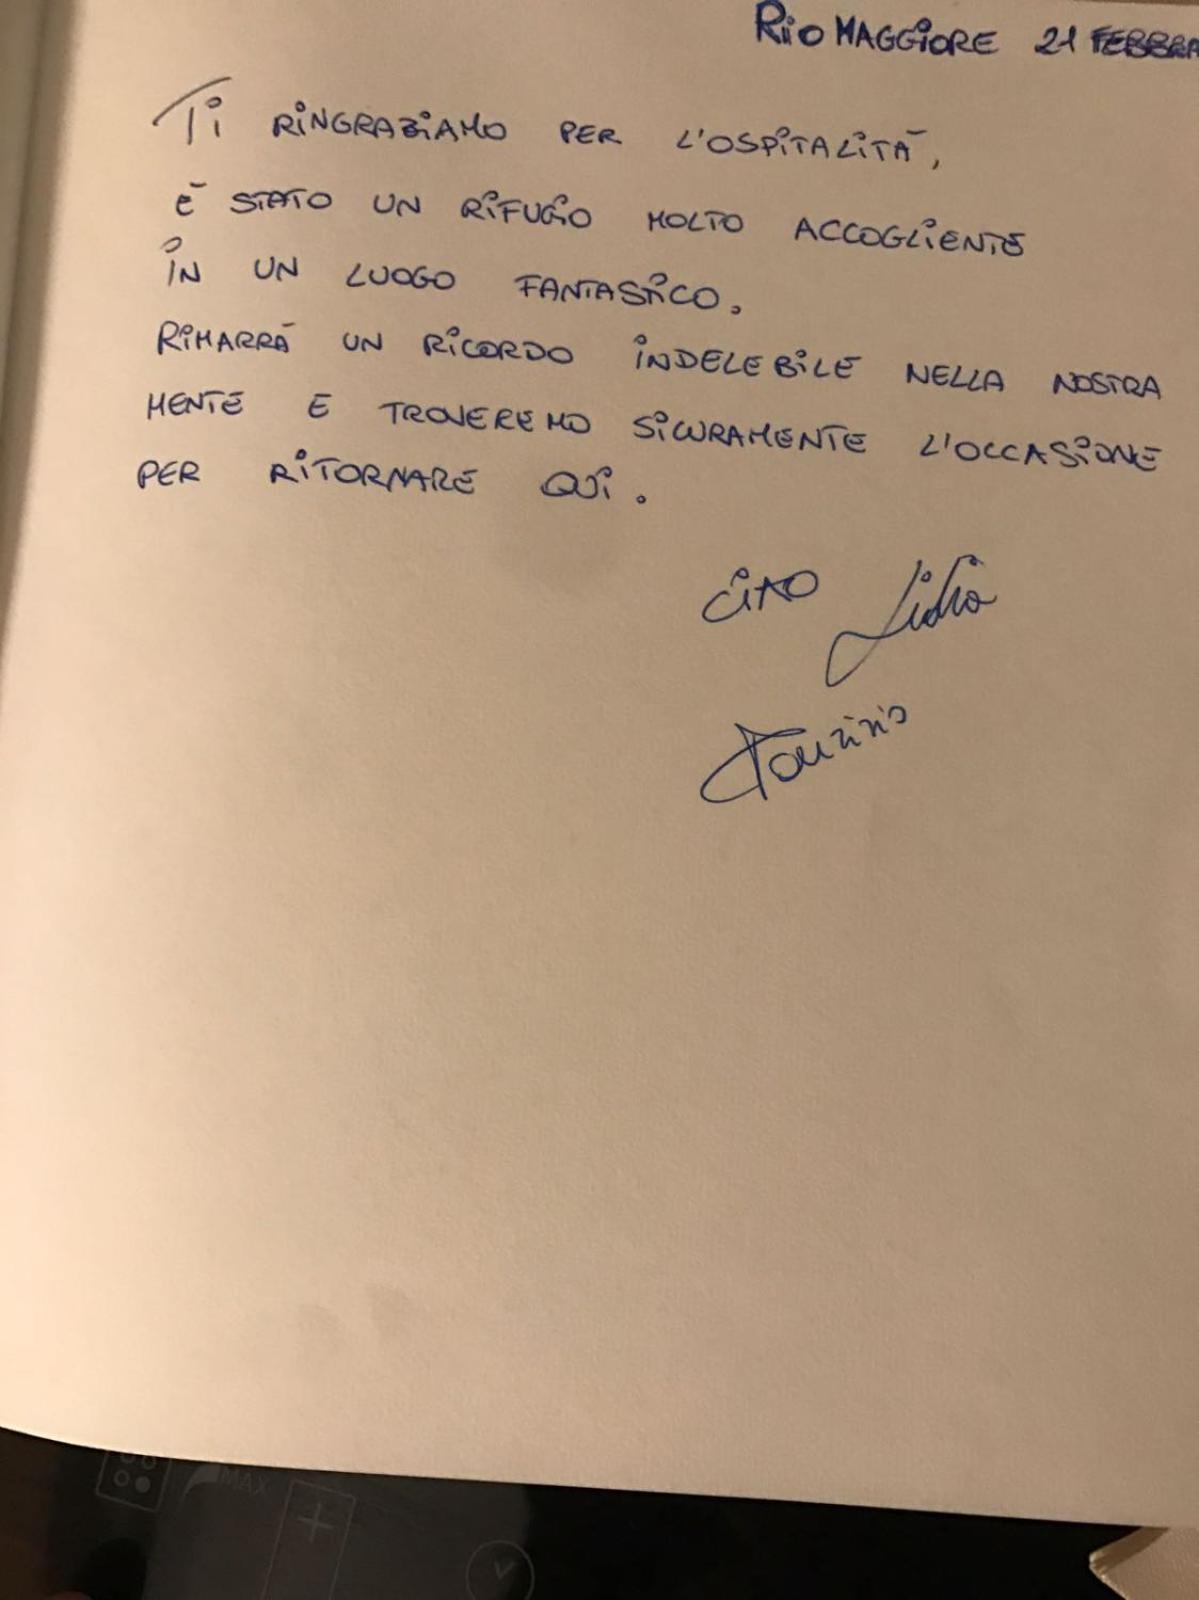 RiO MAGGiORE 21 FEBBRA
Ti RiNGRAZiAMO PER L'OSPiTALiTÀ,
È STATO UN RiFUGiO MOLTO ACCOGLiENTE
iN UN LUOGO FANTASTiCO.
RiMARRÀ UN RiCORDO iNDELEBiLE NELLA NOSTRA
MENTE E TROVEREMO SiCURAMENTE L'OCCASiONE
PER RiTORNARE QUi.
CiAO Lidia
Maurizio
MAX
+